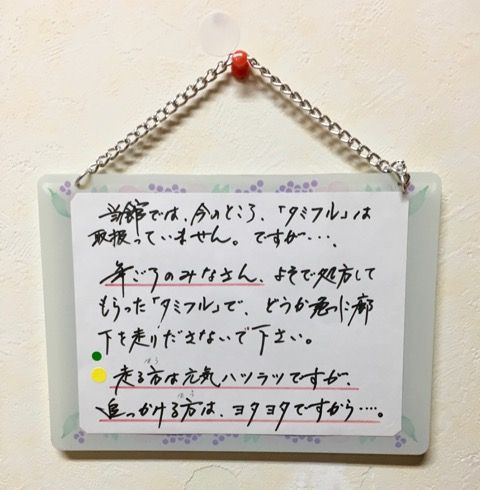 当館では、今のところ、「タミフル」は
取扱っていません。ですが‥‥、
年ごろのみなさん、よそで処方して
もらった「タミフル」で、どうか急に廊
下を走りださないで下さい。
走る方は元気ハツラツですが、
追っかける方は、ヨタヨタですから‥‥。